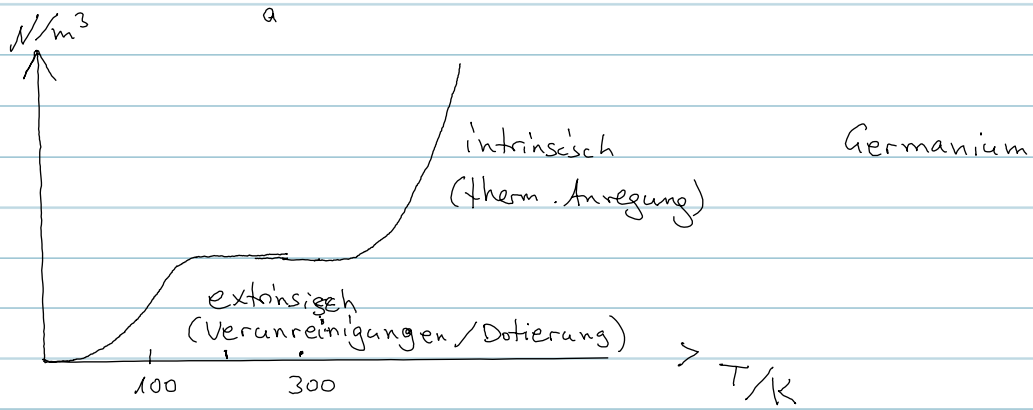 a
N/m³
intrinsisch
(therm. Anregung)
Germanium
extrinsisch
(Verunreinigungen/Dotierung)
100 300
T/K